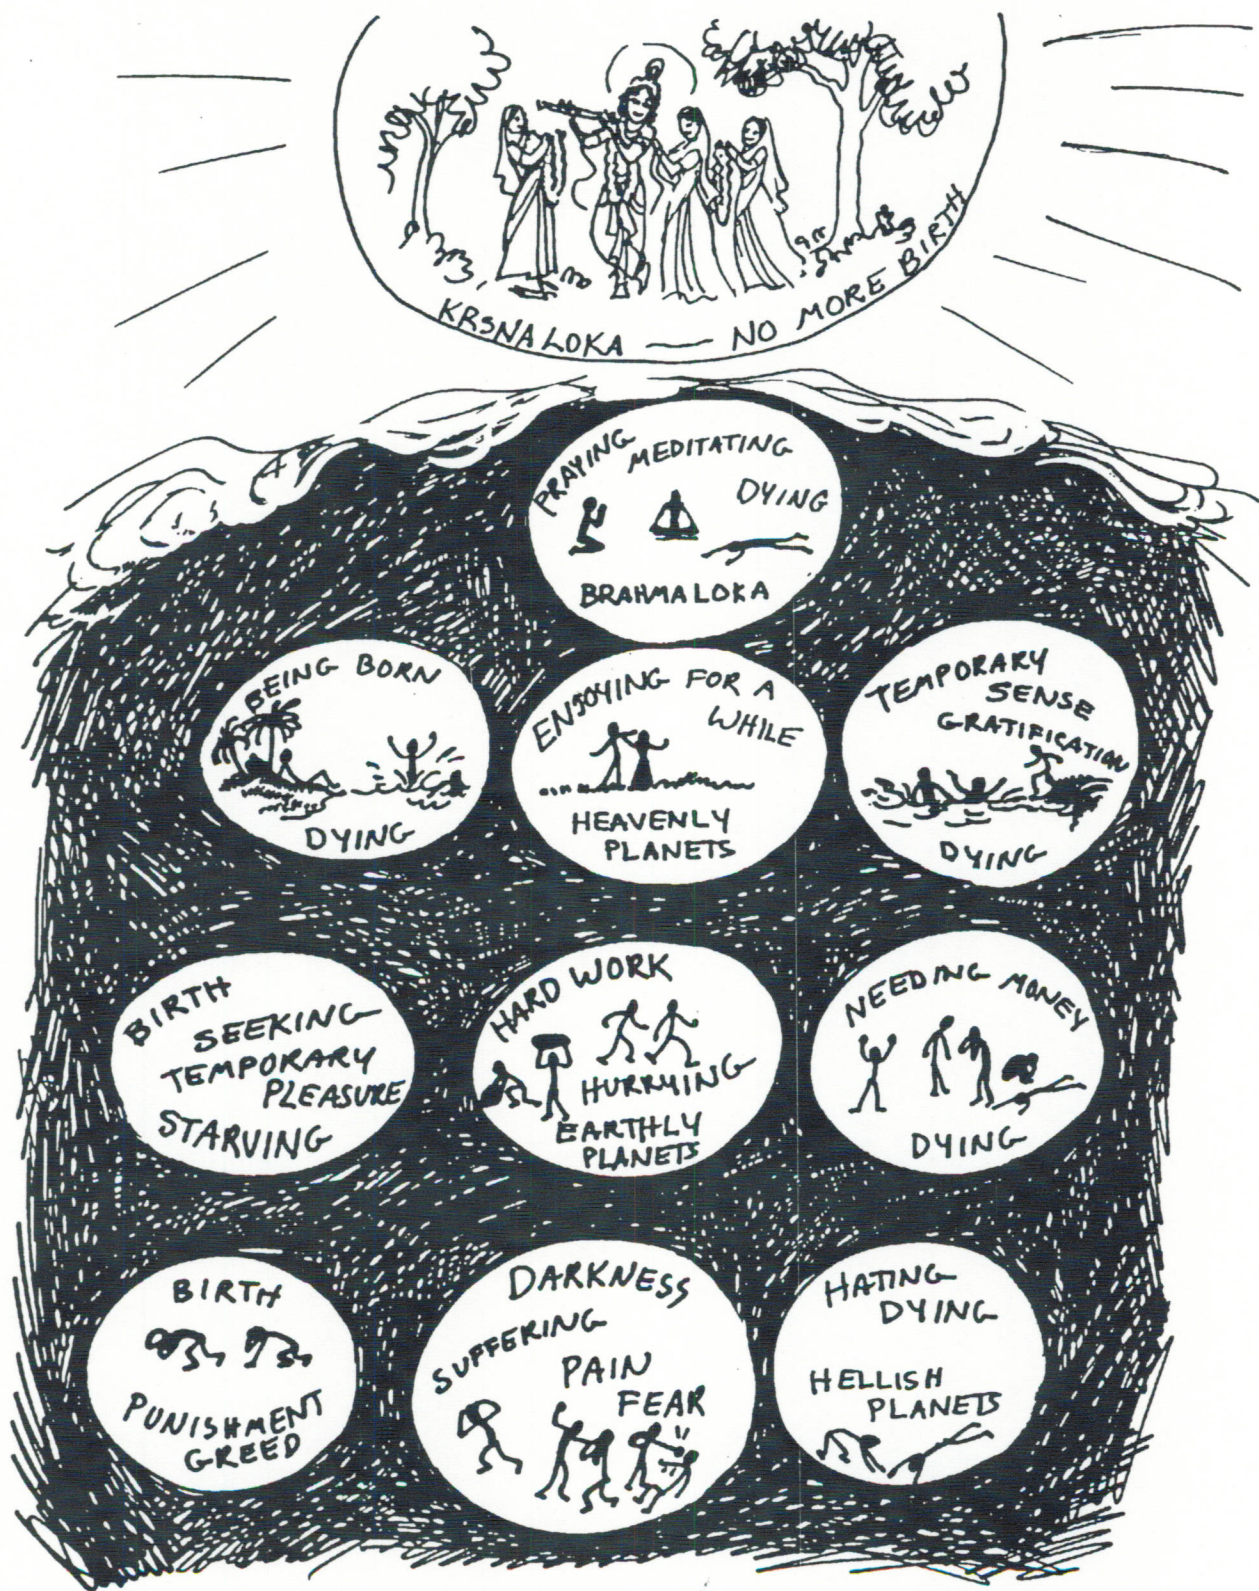 KRSNA LOKA — NO MORE BIRTH
PRAYING MEDITATING
DYING
BRAHMA LOKA
BEING BORN
DYING
ENJOYING FOR A
WHILE
HEAVENLY
PLANETS
TEMPORARY
SENSE
GRATIFICATION
DYING
BIRTH
SEEKING
TEMPORARY
PLEASURE
STARVING
HARD WORK
HURRYING
EARTHLY
PLANETS
NEEDING MONEY
DYING
BIRTH
PUNISHMENT
GREED
DARKNESS
SUFFERING
PAIN
FEAR
HATING
DYING
HELLISH
PLANETS